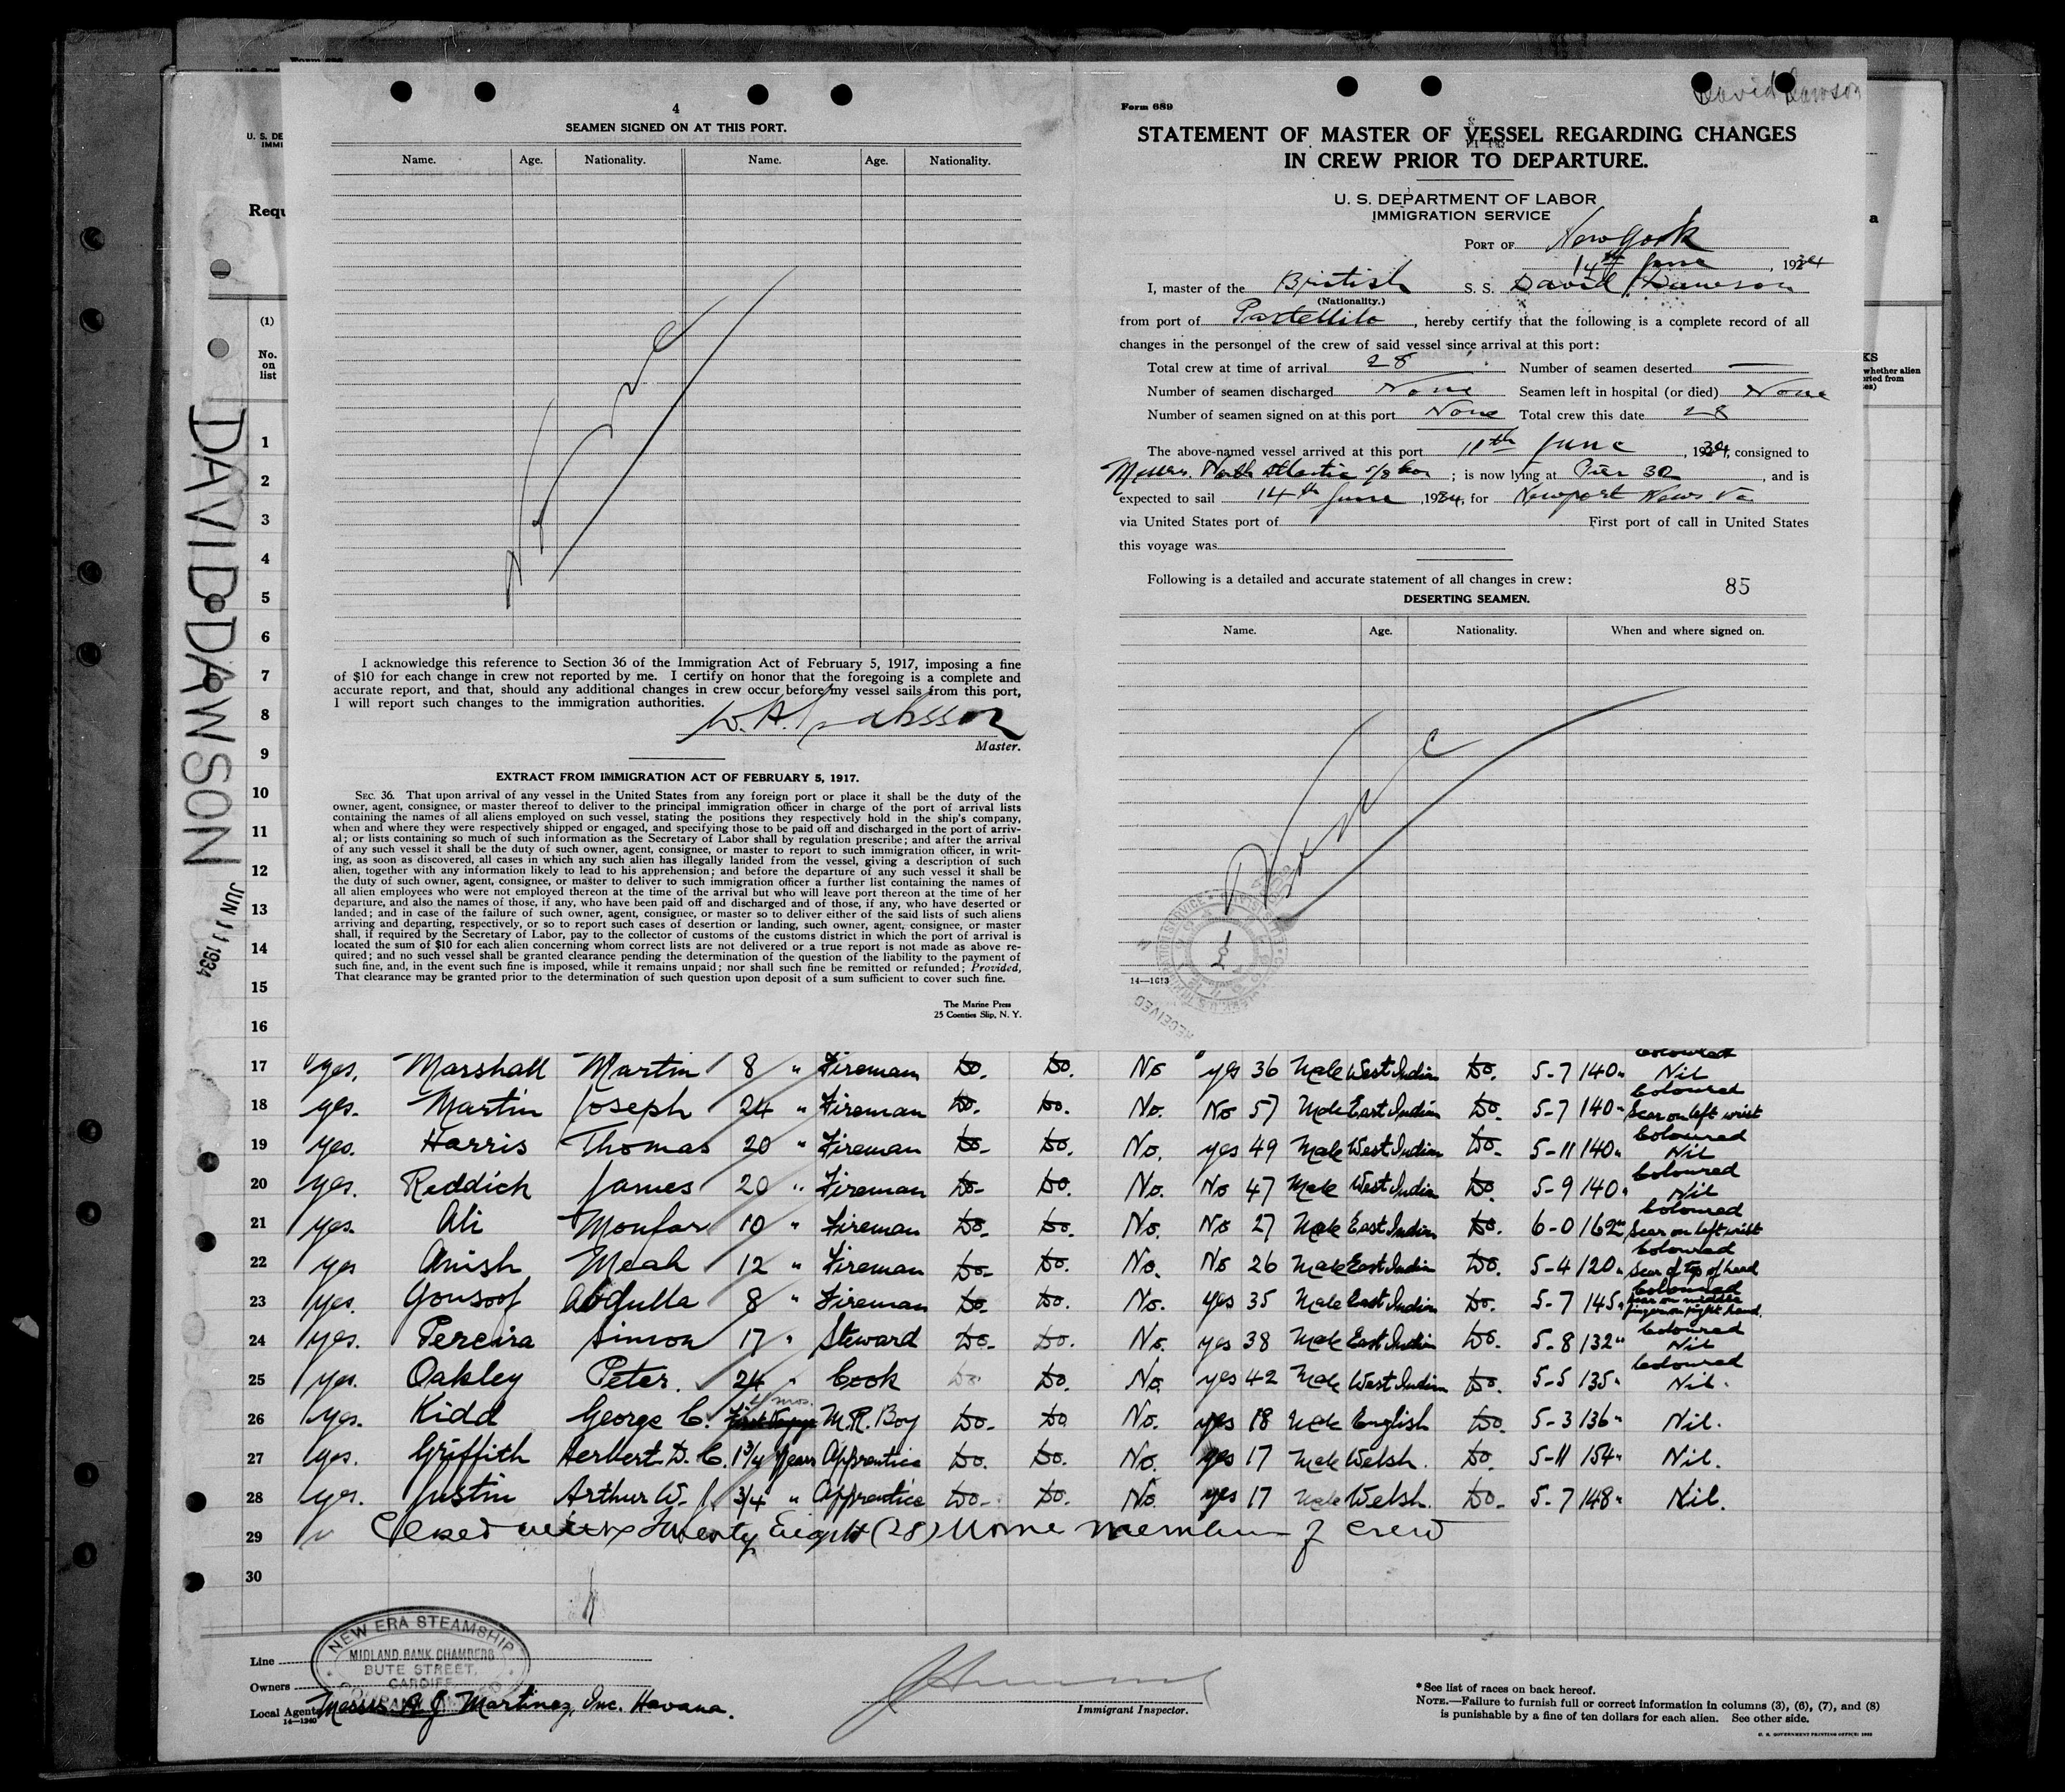 4
SEAMEN SIGNED ON AT THIS PORT.
Name. Age. Nationality. Name. Age. Nationality.
None
I acknowledge this reference to Section 36 of the Immigration Act of February 5, 1917, imposing a fine
of $10 for each change in crew not reported by me. I certify on honor that the foregoing is a complete and
accurate report, and that, should any additional changes in crew occur before my vessel sails from this port,
I will report such changes to the immigration authorities.
W. A.
Master.
EXTRACT FROM IMMIGRATION ACT OF FEBRUARY 5, 1917.
SEC. 36. That upon arrival of any vessel in the United States from any foreign port or place it shall be the duty of the
owner, agent, consignee, or master thereof to deliver to the principal immigration officer in charge of the port of arrival lists
containing the names of all aliens employed on such vessel, stating the positions they respectively hold in the ship's company,
when and where they were respectively shipped or engaged, and specifying those to be paid off and discharged in the port of arriv-
al; or lists containing so much of such information as the Secretary of Labor shall by regulation prescribe; and after the arrival
of any such vessel it shall be the duty of such owner, agent, consignee, or master to report to such immigration officer, in writ-
ing, as soon as discovered, all cases in which any such alien has illegally landed from the vessel, giving a description of such
alien, together with any information likely to lead to his apprehension; and before the departure of any such vessel it shall be
the duty of such owner, agent, consignee, or master to deliver to such immigration officer a further list containing the names of
all alien employees who were not employed thereon at the time of the arrival but who will leave port thereon at the time of her
departure, and also the names of those, if any, who have been paid off and discharged and of those, if any, who have deserted or
landed; and in case of the failure of such owner, agent, consignee, or master so to deliver either of the said lists of such aliens
arriving and departing, respectively, or so to report such cases of desertion or landing, such owner, agent, consignee, or master
shall, if required by the Secretary of Labor, pay to the collector of customs of the customs district in which the port of arrival is
located the sum of $10 for each alien concerning whom correct lists are not delivered or a true report is not made as above re-
quired; and no such vessel shall be granted clearance pending the determination of the question of the liability to the payment of
such fine, and, in the event such fine is imposed, while it remains unpaid; nor shall such fine be remitted or refunded; Provided,
That clearance may be granted prior to the determination of such question upon deposit of a sum sufficient to cover such fine.
The Marine Press
25 Coenties Slip, N. Y.
David Dawson
Form 689
STATEMENT OF MASTER OF VESSEL REGARDING CHANGES
IN CREW PRIOR TO DEPARTURE.
U. S. DEPARTMENT OF LABOR
IMMIGRATION SERVICE
PORT OF New York
14th June, 1934
I, master of the British S. S. David Dawson
(Nationality.)
from port of Pastellilo, hereby certify that the following is a complete record of all
changes in the personnel of the crew of said vessel since arrival at this port:
Total crew at time of arrival 28 Number of seamen deserted —
Number of seamen discharged None Seamen left in hospital (or died) None
Number of seamen signed on at this port None Total crew this date 28
The above-named vessel arrived at this port 11th June, 1934, consigned to
Messrs. North Atlantic s/s Cor ; is now lying at Pier 30, and is
expected to sail 14th June, 1934, for Newport News Va
via United States port of First port of call in United States
this voyage was
Following is a detailed and accurate statement of all changes in crew:
85
DESERTING SEAMEN.
Name. Age. Nationality. When and where signed on.
None
14—1613
RECEIVED
U. S. DE
IMMI
Requ
(1)
No.
on
list
KS
whether alien
orted from
es)
DAVID DAWSON
JUN 11 1934
1
2
3
4
5
6
7
8
9
10
11
12
13
14
15
16
Coloured
17 yes. Marshall Martin 8 " Fireman Do. Do. No yes 36 Male West Indian Do. 5-7 140" Nil
Coloured
18 yes. Martin Joseph 24 " Fireman Do. Do. No. No 57 Male East Indian Do. 5-7 140" Scar on left wrist
Coloured
19 yes. Harris Thomas 20 " Fireman Do. Do. No. yes 49 Male West Indian Do. 5-11 140" Nil
Coloured
20 yes. Reddick James 20 " Fireman Do. Do. No. No 47 Male West Indian Do. 5-9 140" Nil
Coloured
21 yes. Ali Monfar 10 " Fireman Do. Do. No. No 27 Male East Indian Do. 6-0 162" Scar on left wrist
Coloured
22 yes Anish Meah 12 " Fireman Do. Do. No. No 26 Male East Indian Do. 5-4 120" Scar of top of head
Coloured
23 yes. Gonsoof Abdulla 8 " Fireman Do. Do. No. yes 35 Male East Indian Do. 5-7 145" Scar on middle finger on right hand.
Coloured
24 yes. Pereira Simon 17 " Steward Do. Do. No. yes 38 Male East Indian Do. 5-8 132" Nil
Coloured
25 yes. Oakley Peter. 24 " Cook Do. Do. No. yes 42 Male West Indian Do. 5-5 135" Nil.
4 mos.
26 yes. Kidd George C. First Voyage M.R. Boy Do. Do No. yes 18 Male English Do. 5-3 136" Nil.
27 yes. Griffith Herbert D. C. 1 3/4 Years Apprentice Do. Do. No. yes 17 Male Welsh. Do. 5-11 154" Nil.
28 yes. Justin Arthur W. J. 3/4 " Apprentice Do. Do. No. yes 17 Male Welsh. Do. 5-7 148" Nil.
29 Closed Twenty Eight (28) members of crew
30
NEW ERA STEAMSHIP
COMPANY
MIDLAND BANK CHAMBERS
BUTE STREET,
CARDIFF
Line
Owners
Local Agents Messrs A. J. Martinez, Inc. Havana.
14—1240
Immigrant Inspector.
*See list of races on back hereof.
NOTE.—Failure to furnish full or correct information in columns (3), (6), (7), and (8)
is punishable by a fine of ten dollars for each alien. See other side.
U. S. GOVERNMENT PRINTING OFFICE: 1932